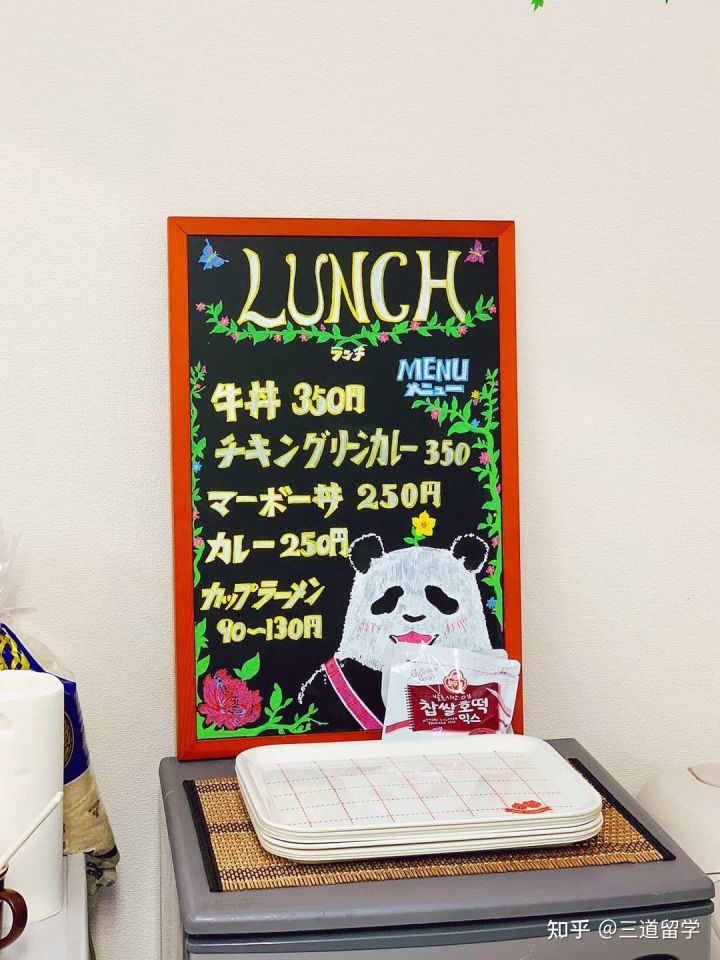 LUNCH
ランチ
MENU
メニュー
牛丼 350円
チキングリーンカレー 350
マーボー丼 250円
カレー 250円
カップラーメン
90～130円
찹쌀호떡
믹스
知乎 @三道留学